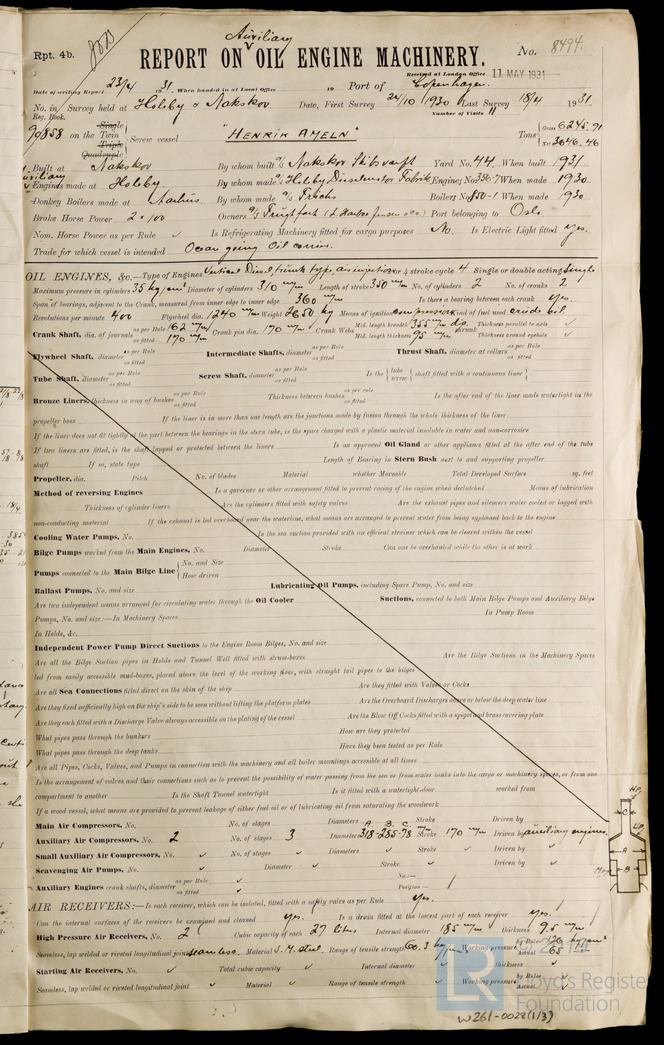 Rpt. 4b.
Auxiliary
REPORT ON OIL ENGINE MACHINERY.
No. 8494.
Received at London Office 11 MAY 1931
Date of writing Report 23/4 1931. When handed in at Local Office 19 Port of Copenhagen.
No. in Survey held at Holeby & Nakskov Date, First Survey 24/10 1930 Last Survey 18/4 1931.
Reg. Book. Number of Visits 11
90858 on the Single Twin Triple Quadruple Screw vessel "HENRIK AMELN" Tons Gross 6245.91 Net 3646.46
Built at Nakskov By whom built A/S Nakskov Skibsværft Yard No. 44 When built 1931
Engines made at Holeby By whom made A/S Holeby Dieselmotor Fabrik Engine No. 356-7 When made 1930
Donkey Boilers made at Aarhus By whom made A/S Frichs Boiler No. 850-1 When made 1930.
Brake Horse Power 2 × 100 Owners Port belonging to Oslo.
Nom. Horse Power as per Rule ✓ Is Refrigerating Machinery fitted for cargo purposes No. Is Electric Light fitted yes.
Trade for which vessel is intended Ocean going Oil carrier.
OIL ENGINES, &c.—Type of Engines Vertical Diesel, trunk type, air injection 2 or 4 stroke cycle 4 Single or double acting Single
Maximum pressure in cylinders 35 kg/cm² Diameter of cylinders 310 m/m Length of stroke 350 m/m No. of cylinders 2 No. of cranks 2
Span of bearings, adjacent to the Crank, measured from inner edge to inner edge 360 m/m Is there a bearing between each crank Yes.
Revolutions per minute 400 Flywheel dia. 1240 m/m Weight 2650 kg Means of ignition compression Kind of fuel used crude oil
Crank Shaft, dia. of journals as per Rule 162 m/m as fitted 170 m/m Crank pin dia. 170 m/m Crank Webs Mid. length breadth 355 m/m Mid. length thickness 95 m/m shrunk Thickness parallel to axis ✓ Thickness around eyehole ✓
Flywheel Shaft, diameter as per Rule as fitted Intermediate Shafts, diameter as per Rule as fitted Thrust Shaft, diameter at collars as per Rule as fitted
Tube Shaft, diameter as per Rule as fitted Screw Shaft, diameter as per Rule as fitted Is the tube screw shaft fitted with a continuous liner
Bronze Liners, thickness in way of bushes as per Rule as fitted Thickness between bushes as per rule as fitted Is the after end of the liner made watertight in the
propeller boss If the liner is in more than one length are the junctions made by fusion through the whole thickness of the liner
If the liner does not fit tightly at the part between the bearings in the stern tube, is the space charged with a plastic material insoluble in water and non-corrosive
If two liners are fitted, is the shaft lapped or protected between the liners Is an approved Oil Gland or other appliance fitted at the after end of the tube
shaft If so, state type Length of Bearing in Stern Bush next to and supporting propeller
Propeller, dia. Pitch No. of blades Material whether Moveable Total Developed Surface sq. feet
Method of reversing Engines Is a governor or other arrangement fitted to prevent racing of the engine when declutched Means of lubrication
Thickness of cylinder liners Are the cylinders fitted with safety valves Are the exhaust pipes and silencers water cooled or lagged with
non-conducting material If the exhaust is led overboard near the waterline, what means are arranged to prevent water from being syphoned back to the engine
Cooling Water Pumps, No. Is the sea suction provided with an efficient strainer which can be cleared within the vessel
Bilge Pumps worked from the Main Engines, No. Diameter Stroke Can one be overhauled while the other is at work
Pumps connected to the Main Bilge Line No. and Size How driven
Ballast Pumps, No. and size Lubricating Oil Pumps, including Spare Pump, No. and size
Are two independent means arranged for circulating water through the Oil Cooler Suctions, connected to both Main Bilge Pumps and Auxiliary Bilge
Pumps, No. and size:—In Machinery Spaces In Pump Room
In Holds, &c.
Independent Power Pump Direct Suctions to the Engine Room Bilges, No. and size
Are all the Bilge Suction pipes in Holds and Tunnel Well fitted with strum-boxes Are the Bilge Suctions in the Machinery Spaces
led from easily accessible mud-boxes, placed above the level of the working floor, with straight tail pipes to the bilges
Are all Sea Connections fitted direct on the skin of the ship Are they fitted with Valves or Cocks
Are they fixed sufficiently high on the ship's side to be seen without lifting the platform plates Are the Overboard Discharges above or below the deep water line
Are they each fitted with a Discharge Valve always accessible on the plating of the vessel Are the Blow Off Cocks fitted with a spigot and brass covering plate
What pipes pass through the bunkers How are they protected
What pipes pass through the deep tanks Have they been tested as per Rule
Are all Pipes, Cocks, Valves, and Pumps in connection with the machinery and all boiler mountings accessible at all times
Is the arrangement of valves and their connections such as to prevent the possibility of water passing from the sea or from water tanks into the cargo or machinery spaces, or from one
compartment to another Is the Shaft Tunnel watertight Is it fitted with a watertight door worked from
If a wood vessel, what means are provided to prevent leakage of either fuel oil or of lubricating oil from saturating the woodwork
Main Air Compressors, No. No. of stages Diameters A B C Stroke Driven by
Auxiliary Air Compressors, No. 2 No. of stages 3 Diameters 318-285-78 m/m Stroke 170 m/m Driven by auxiliary engines.
Small Auxiliary Air Compressors, No. ✓ No. of stages ✓ Diameters ✓ Stroke ✓ Driven by ✓
Scavenging Air Pumps, No. ✓ Diameter ✓ Stroke ✓ Driven by ✓
Auxiliary Engines crank shafts, diameter as per Rule ✓ as fitted ✓ No. Position
AIR RECEIVERS:—Is each receiver, which can be isolated, fitted with a safety valve as per Rule Yes.
Can the internal surfaces of the receivers be examined and cleaned Yes. Is a drain fitted at the lowest part of each receiver Yes.
High Pressure Air Receivers, No. 2 Cubic capacity of each 27 litres Internal diameter 185 m/m thickness 9.5 m/m
Seamless, lap welded or riveted longitudinal joint seamless. Material S.M. steel. Range of tensile strength Working pressure by Rules Actual 65
Starting Air Receivers, No. ✓ Total cubic capacity ✓ Internal diameter ✓ thickness ✓
Seamless, lap welded or riveted longitudinal joint ✓ Material ✓ Range of tensile strength ✓ Working pressure by Rules ✓ Actual ✓
LR
Lloyd's Register
Foundation
W261-0022(1/3)